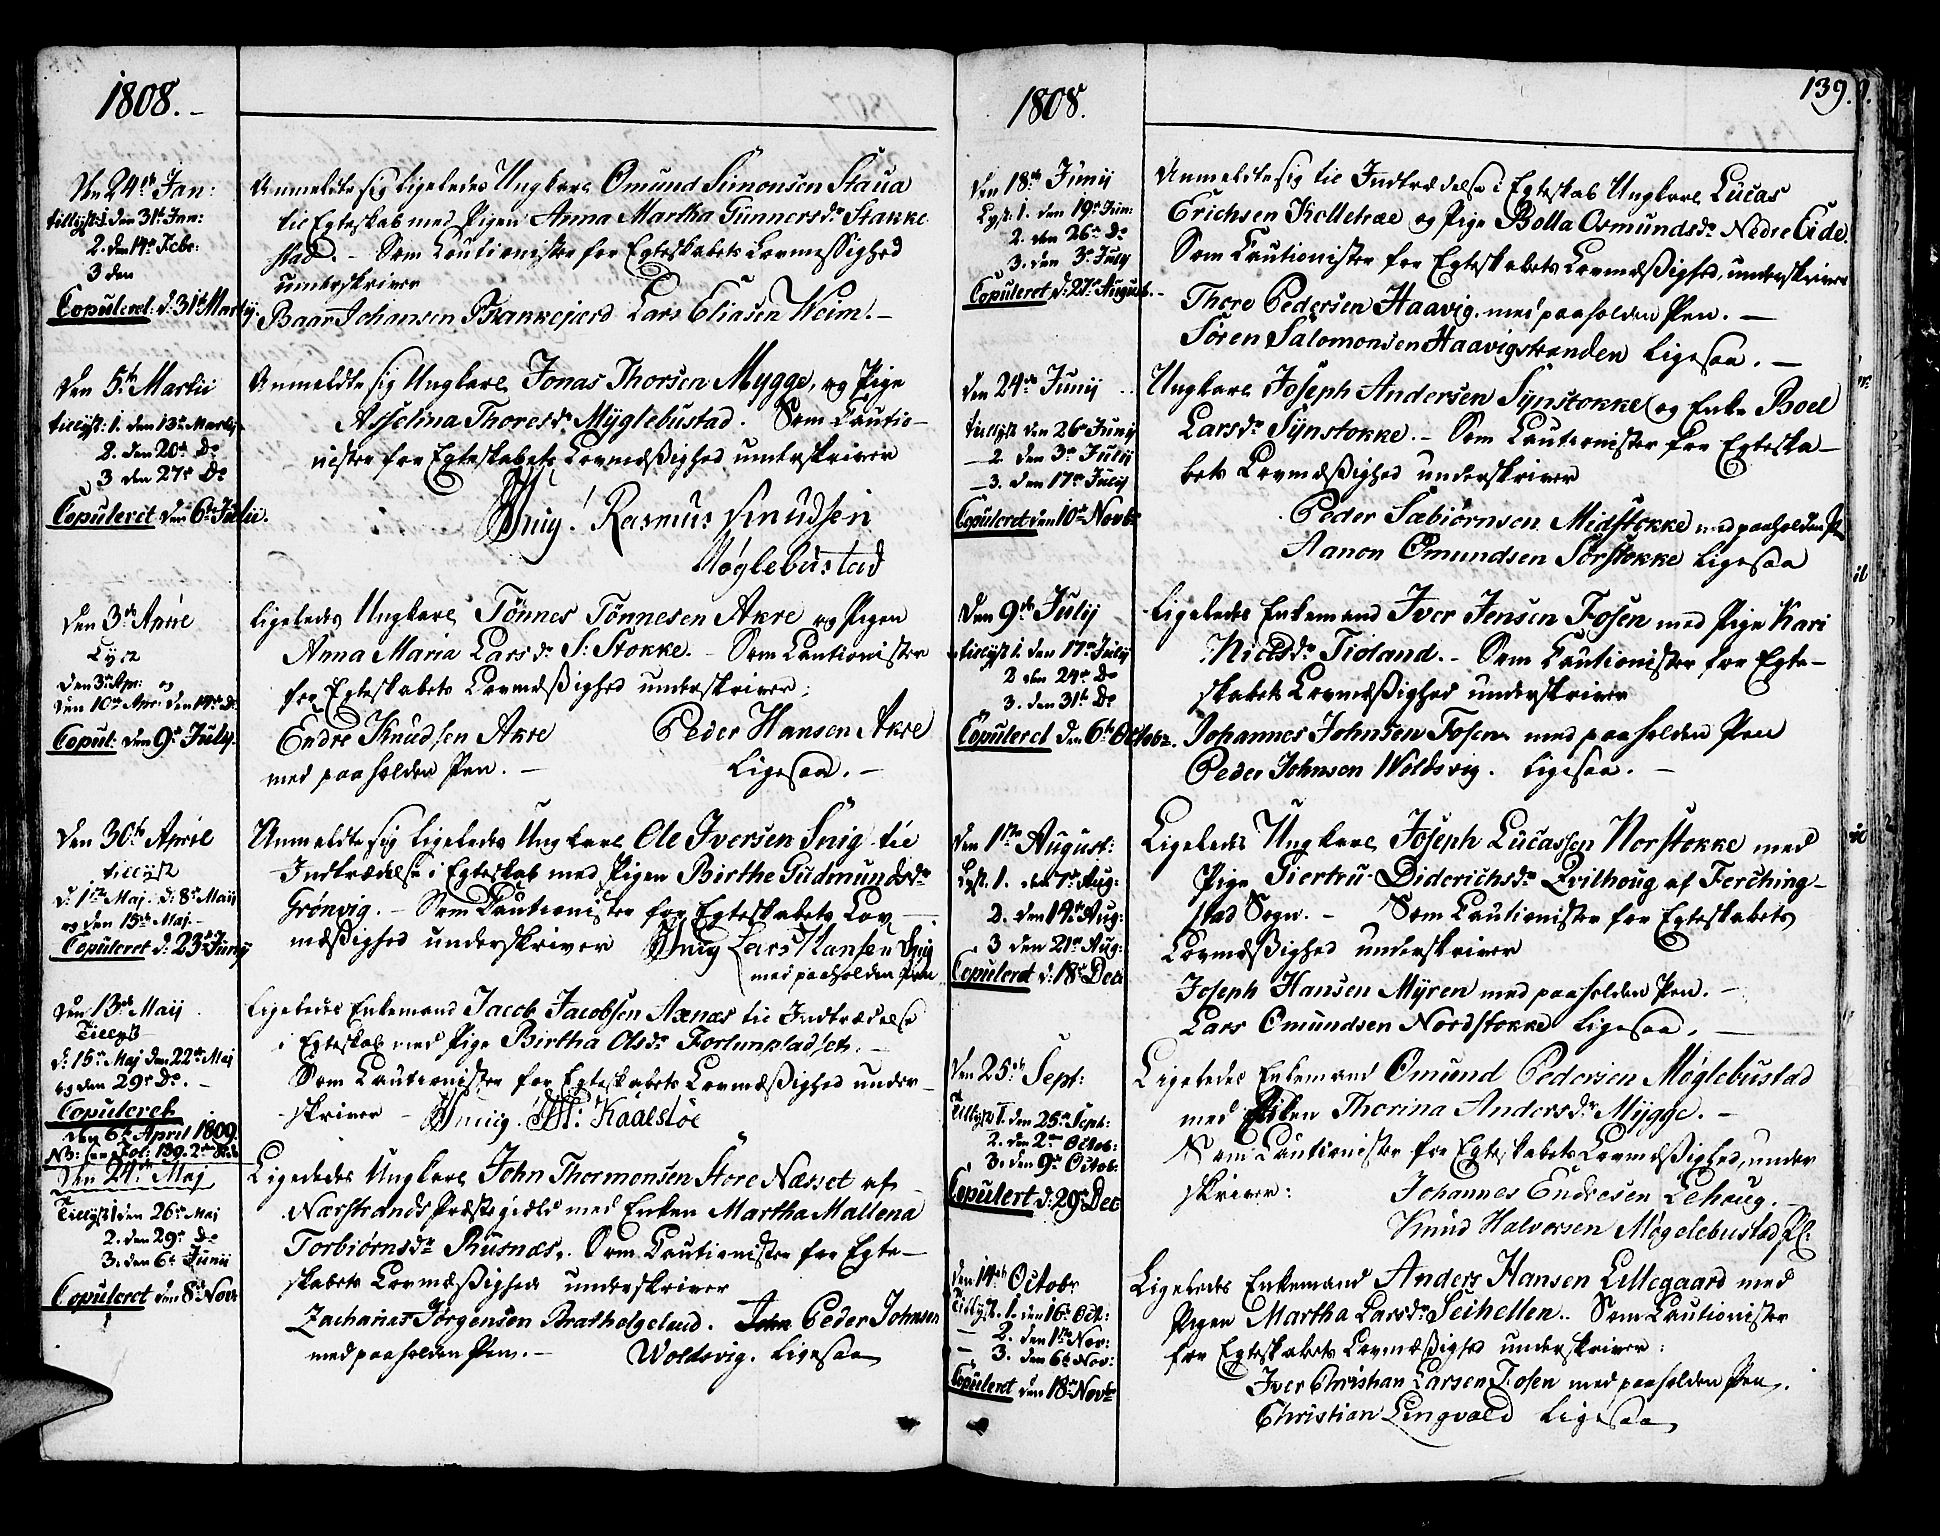 1808.
Den 24de Jan:
tillyst: 1. den 31te Jan:
2. den 14de Febr:
3 den
Copuleret: d: 31te Martij
Anmeldte sig ligeledes Ungkarl Omund Simonsen Staua
til Egteskab med Pigen Anna Martha Gunnersdr Stakke
stad. – Som Cautionister for Egteskabets Lovmessighed
underskriver
Baar Johansen Bankejord Lars Eliasen Weim. –
Den 5te Martii
tillyst: 1. den 13de Martij
2. den 20de Do
3 den 27de Do
Copuleret den 6te Julii.
Anmeldte sig Ungkarl Jonas Thorsen Mygge, og Pige
Asselina Thoresdr Myglebustad. Som Cautio–
nister for Egteskabets Lovmæßighed underskriver
Snig! Rasmus Knudsen
Møglebustad
Den 3de Aprīl
Lyst
den 3de Apr: og
den 10de Apr: den 17de do
Copul: den 9de July
ligeledes Ungkarl Tönnes Tönnesen Akre og Pigen
Anna Maria Larsdr S: Stokke. – Som Cautionister
for Egteskabets Lovmæßighed underskriver:
Endre Knudsen Akre Peder Hansen Akre
med paaholden Pen. – Ligesaa. –
Den 30te Aprīl
tillyst
d: 1ste Maj. d: 8de Maij
og den 15de Maj. –
Copuleret d: 23de Junij
Anmeldte sig ligeledes Ungkarl Ole Iversen Snig til
Indtrædelse i Egteskab med Pigen Birthe Gudmundsdr
Grönvig. – Som Cautionister for Egteskabets Lov–
mæßighed underskriver Snig Lars Hansen Snig
med paaholden Pen
Den 13de Maij
Tillyst
d: 15de Maj den 22de Maj
og den 29de Do. –
Copuleret
den 6te April 1809
NB: see Fol: 139. 2den Side
ligeledes Enkemand Jacob Jacobsen Axnæs til Indtrædelse
i Egteskab med Pige Birtha Olsdr Fortunpladset. –
Som Cautionister for Egteskabets Lovmæßighed under–
skriver – Snig. Kaalstöe
Den 24de Maj
Tillyst 1 den 26de Maj
2. den 29de Do
3. den 6te Junii
Copuleret den 8de Novr
Ligeledes Ungkarl John Thormonsen Store Næsset af
Nærstrands Præstegield med Enken Martha Mallena
Torbiörnsdr Rusnæs. Som Cautionister for Egte–
skabets Lovmæßighed underskriver
Zacharias Jörgensen Bratholgeland. John Peder Johnsen
med paaholden Pen. – Woldsvig. Ligesaa
1808.
139.
Den 18de Junij
Lyst: 1. den 19de Jun:
2. den 26de Do
3. den 3de July
Copuleret d: 27de August. –
Anmeldte sig til Indtrædelse i Egteskab Ungkarl Lucas
Erichsen Kolletræe og Pige Bolla Osmundsdr Nedre Eide.
Som Cautionister for Egteskabets Lovmæßighed, underskriver
Thore Pedersen Haavig. med paaholden Pen. –
Sören Salomonsen Haavigstranden Ligesaa. –
Den 24de Junij
tillyst den 26de Junij
– 2 den 3de Julij
– 3. den 17de Julij
Copuleret den 10de Novbr
Ungkarl Joseph Andersen Synstokke og Enke Boel
Larsdr Synstokke. – Som Cautionister for Egteska–
bets Lovmæßighed underskriver
Peder Sæbiörnsen Midstokke med paaholden P
Aanon Omundsen Sörstokke Ligesaa
Den 9de Julij
tillyst 1. den 17de Julij
2 den 24de Do
3. den 31te Do
Copuleret den 6te Octobr.
Ligeledes Enkemand Iver Jensen Fosen med Pige Kari
Nielsdr Tioland. – Som Cautionister for Egte–
skabets Lovmæßighed underskriver
Johannes Johnsen Fosen med paaholden Pen
Peder Johnsen Woldsvig. Ligesaa. –
Den 1ste August:
Lyst. 1. den 7de Aug:
2. den 14de Aug:
3 den 21de Aug:
Copuleret d: 18de Dec
Ligeledes Ungkarl Joseph Lucassen Norstokke med
Pige Giertru Diderichsdr Qvilhoug af Ferching–
stad Sogn. – Som Cautionister for Egteskabets
Lovmæßighed underskriver
Joseph Hansen Myren med paaholden Pen. –
Lars Omundsen Nordstokke Ligesaa. –
Den 25de Sept:
Tillyst 1. den 25de Sept:
2. den 2den Octob:
3. den 9de Octob:
Copulert d: 29de Dec
Ligeledes Enkemand Omund Pedersen Møglebustad
med Piken Thorina Andersdr Mygge. –
Som Cautionister for Egteskabets Lovmæßighed, under
skriver: Johannes Endresen Lehoug.
Knud Halvorsen Møgelebustad
Den 14de Octobr
Tillyst. 1. den 16de Oct:
– 2. den 1ste Nov:
– 3. den 6te Nov:
Copuleret den 18de Novbr
Ligeledes Enkemand Anders Hansen Lillegaard med
Pigen Martha Larsdr Seihellen. Som Cautionister
for Egteskabets Lovmæßighed underskriver:
Iver Christian Larsen Fosen med paaholden Pen.
Christian Lingvald Ligesaa